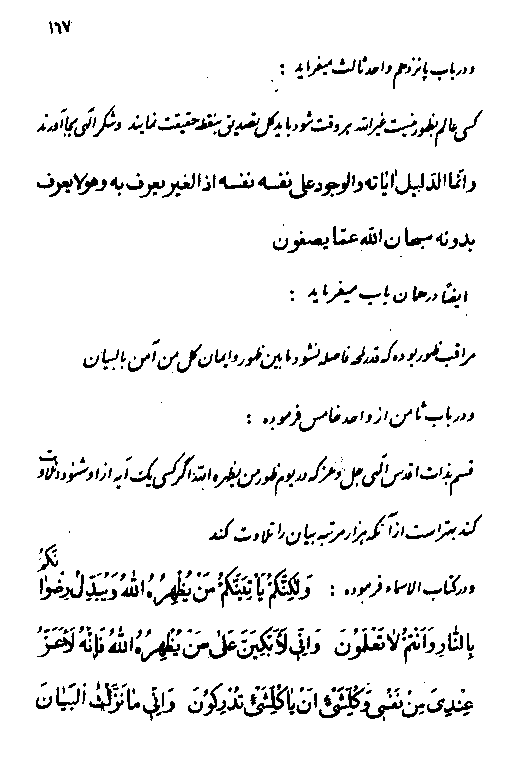 ١٦٧
ودر باب پانزدهم واحد ثالث میفراید :
کسی عالم بظهور نیست غیر الله هر وقت شود باید کل بتصدیق بنقطه حقیقت نمایند وشکر الهی بجا آورند
وانّما الدّلیل ایاته والوجود علی نفسه نفسه اذ الغیر یعرف به وهو لا یعرف
بدونه سبحان الله عمّا یصفون
ایضًا در همان باب میفرماید :
مراقب ظهور بوده که قدر لمحه فاصله نشود ما بین ظهور وایمان کل من آمن بالبیان
ودر باب ثامن از واحد خامس فرموده :
قسم بذات اقدس الهی جل وعز که در یوم ظهور من یظهره الله اگر کسی یک آیه از او شنود وتلاوت
کند بهتر است از آنکه هزار مرتبه بیان را تلاوت کند
ودر کتاب الاسماء فرموده : وَلٰکِنَّکُمْ یَاْتِیَنَّکُمْ مَنْ یُظْهِرُهُ اللهُ وَیُبَدِّلُ رِضْوَانَکُمْ
بِالنَّارِ وَاَنْتُمْ لاٰ تَعْلَمُونَ وَاِنّی لَاَبْکِیَنَّ عَلیٰ مَنْ یُظْهِرُهُ اللهُ فَاِنَّهُ لَاَعَزُّ
عِنْدِی مِنْ نَفْسی وَکُلِّشَیْءٍ اَنْ یٰا کُلِّشَیْءٍ تُدْرِکُونَ وَاِنّی مٰا نَزَّلْتُ الْبَیٰانَ